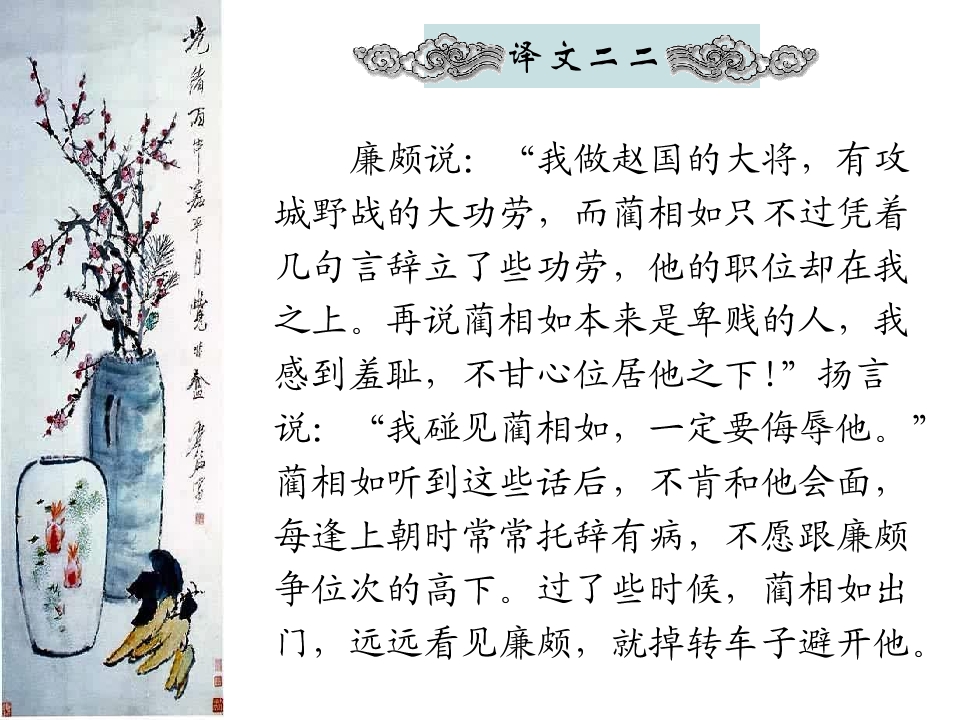 译文二二
廉颇说：“我做赵国的大将，有攻
城野战的大功劳，而蔺相如只不过凭着
几句言辞立了些功劳，他的职位却在我
之上。再说蔺相如本来是卑贱的人，我
感到羞耻，不甘心位居他之下！”扬言
说：“我碰见蔺相如，一定要侮辱他。”
蔺相如听到这些话后，不肯和他会面，
每逢上朝时常常托辞有病，不愿跟廉颇
争位次的高下。过了些时候，蔺相如出
门，远远看见廉颇，就掉转车子避开他。